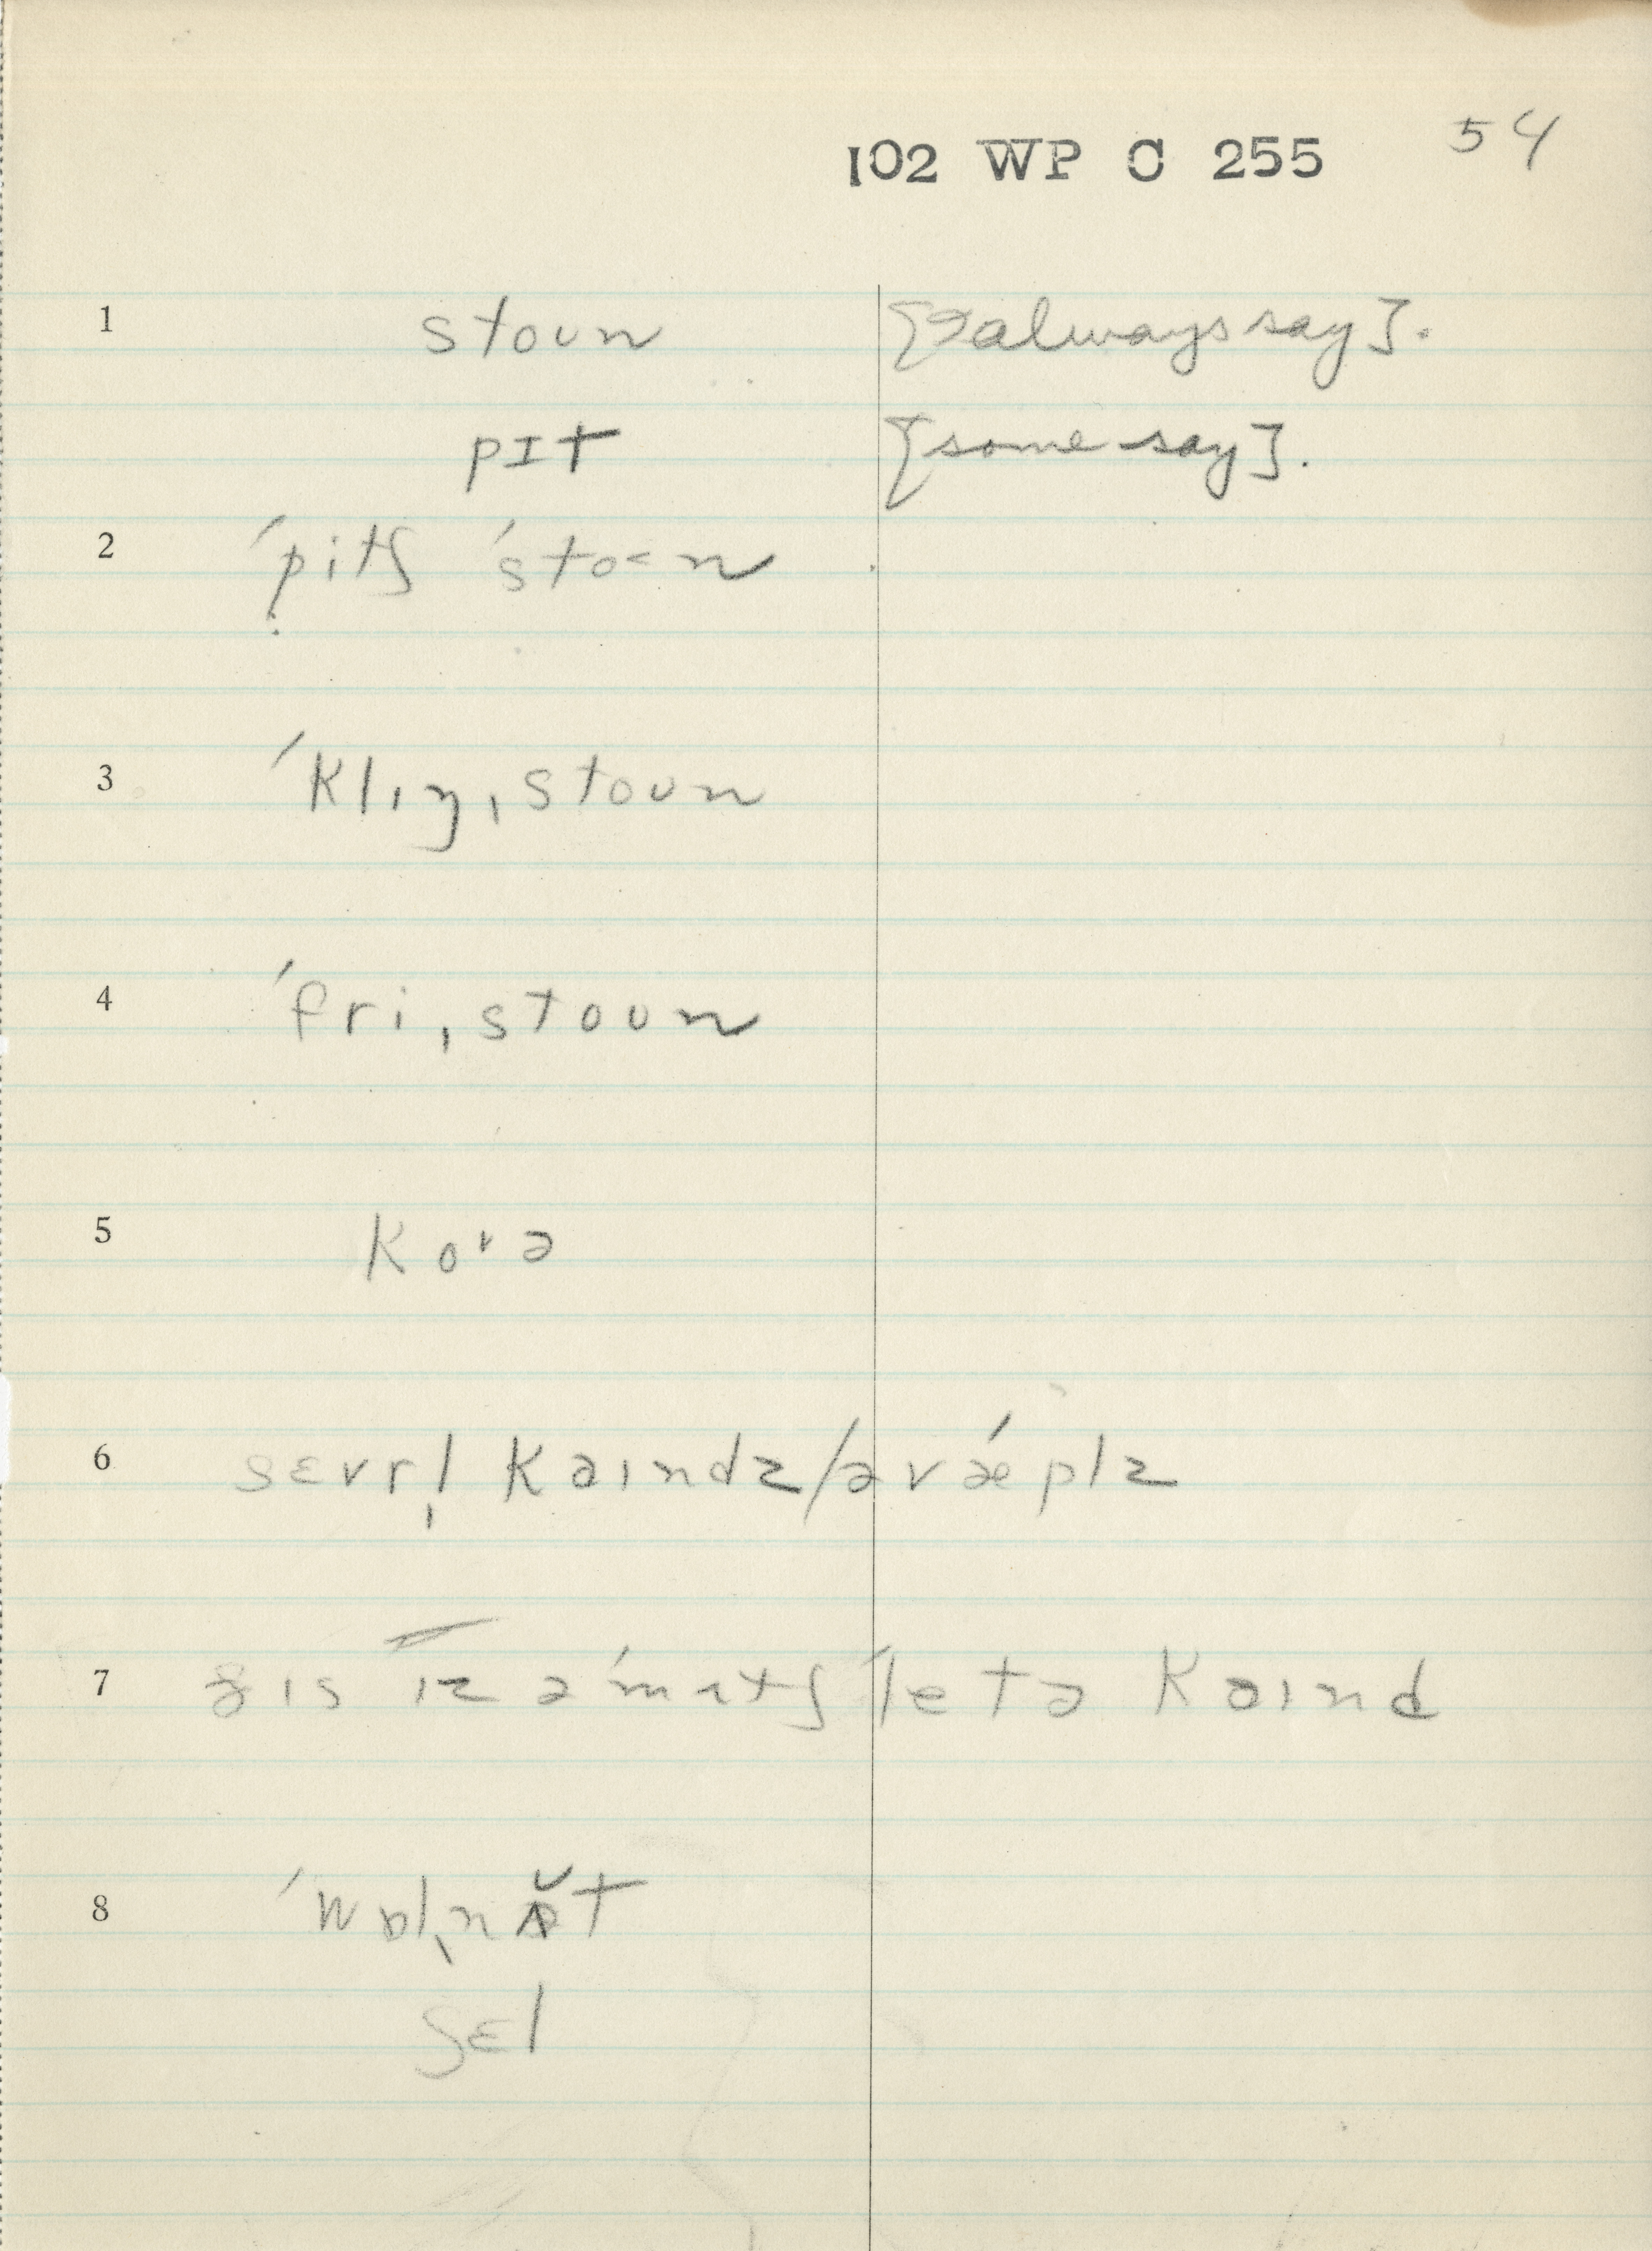 102 WP C 255 54
1 stoun [I always say].
pɪt [some say].
2 ˈpitʃ ˈstoʊn
3 ˈklɪŋˌstoun
4 ˈfriˌstoun
5 korə
6 sɛvrl̩ kaɪndz/əv ǽplz
7 ðɪs ɪz ə ˈmʌtʃ ˈletə kaɪnd
8 ˈwɒlˌnʌ̆t
ʃɛl